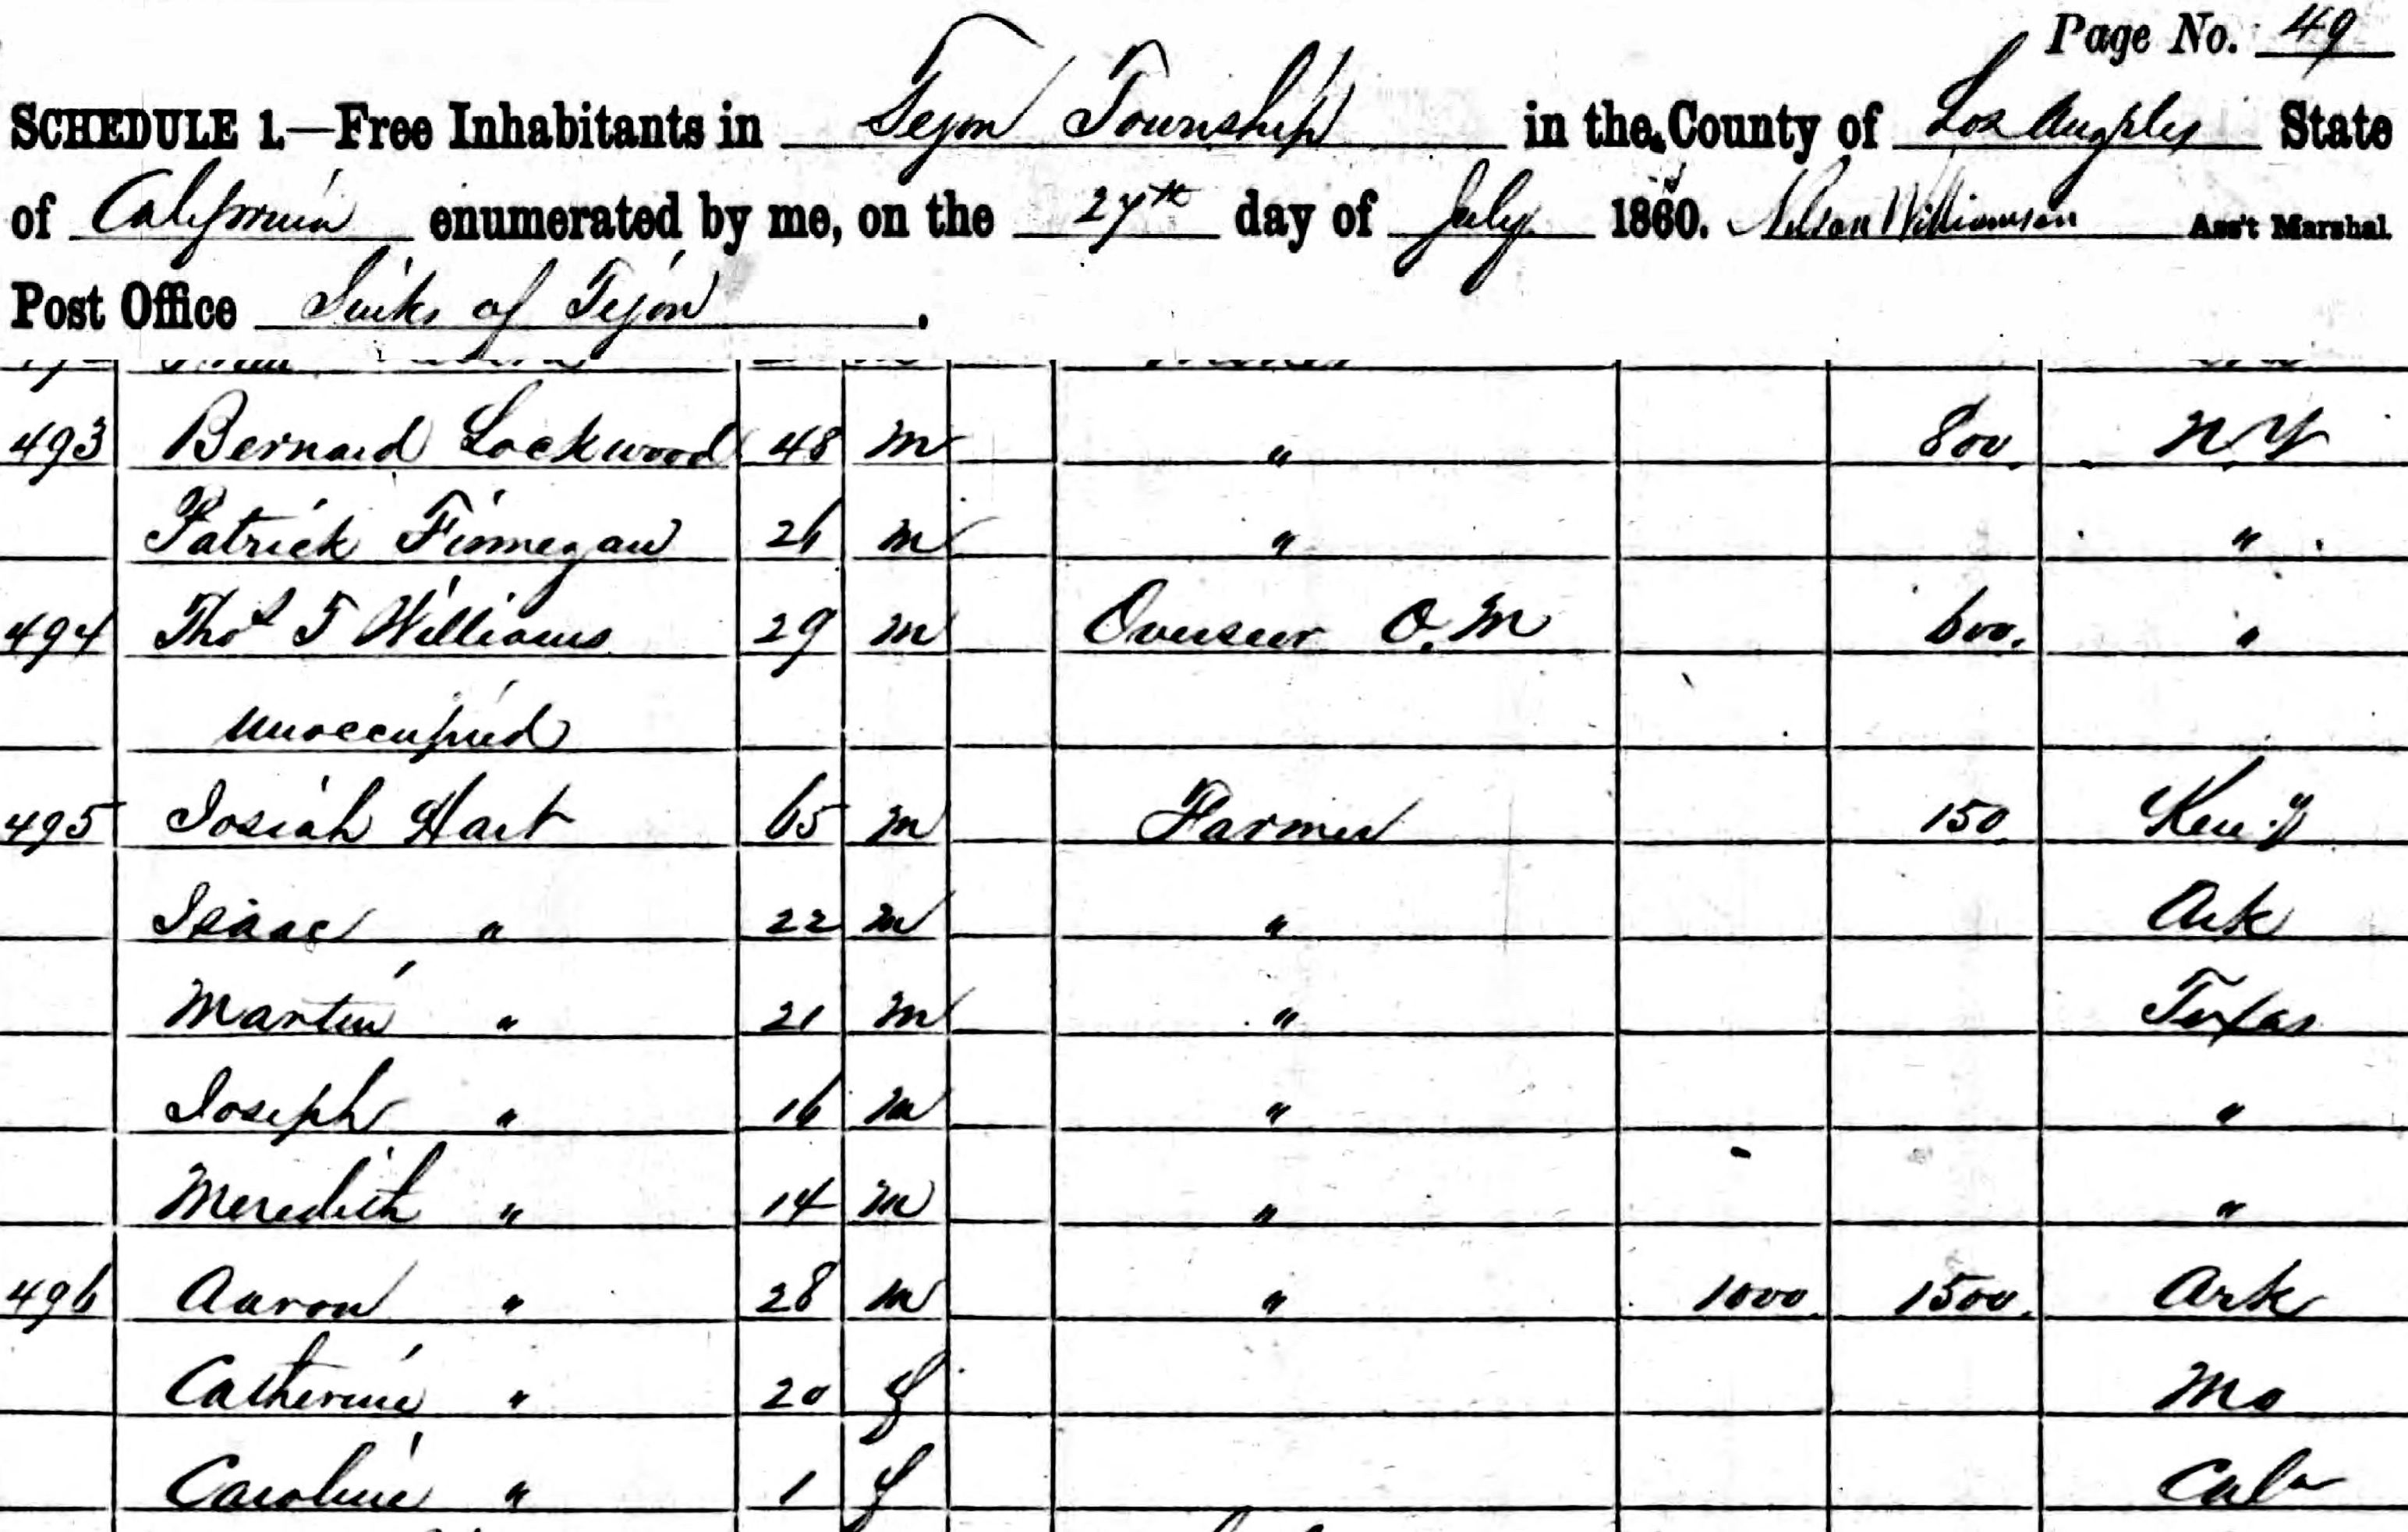 Page No. 49
SCHEDULE 1.—Free Inhabitants in Tejon Township in the County of Los Angeles State
of California enumerated by me, on the 27th day of July 1860. Nelson Williamson Ass't Marshal.
Post Office Sinks of Tejon.
493 Bernard Lockwood 48 m " 800. N.Y
Patrick Finnegan 26 m " "
494 Thos T Williams 29 m Overseer O.M 600. "
Unoccupied
495 Josiah Hart 65 m Farmer 150. Ken.y
Isaac " 22 m " Ark
Martin " 21 m " Texas
Joseph " 16 m " "
Meredith " 14 m " "
496 Aaron " 28 m " 1000. 1500. Ark
Catherine " 20 f Mo
Caroline " 1 f Cal